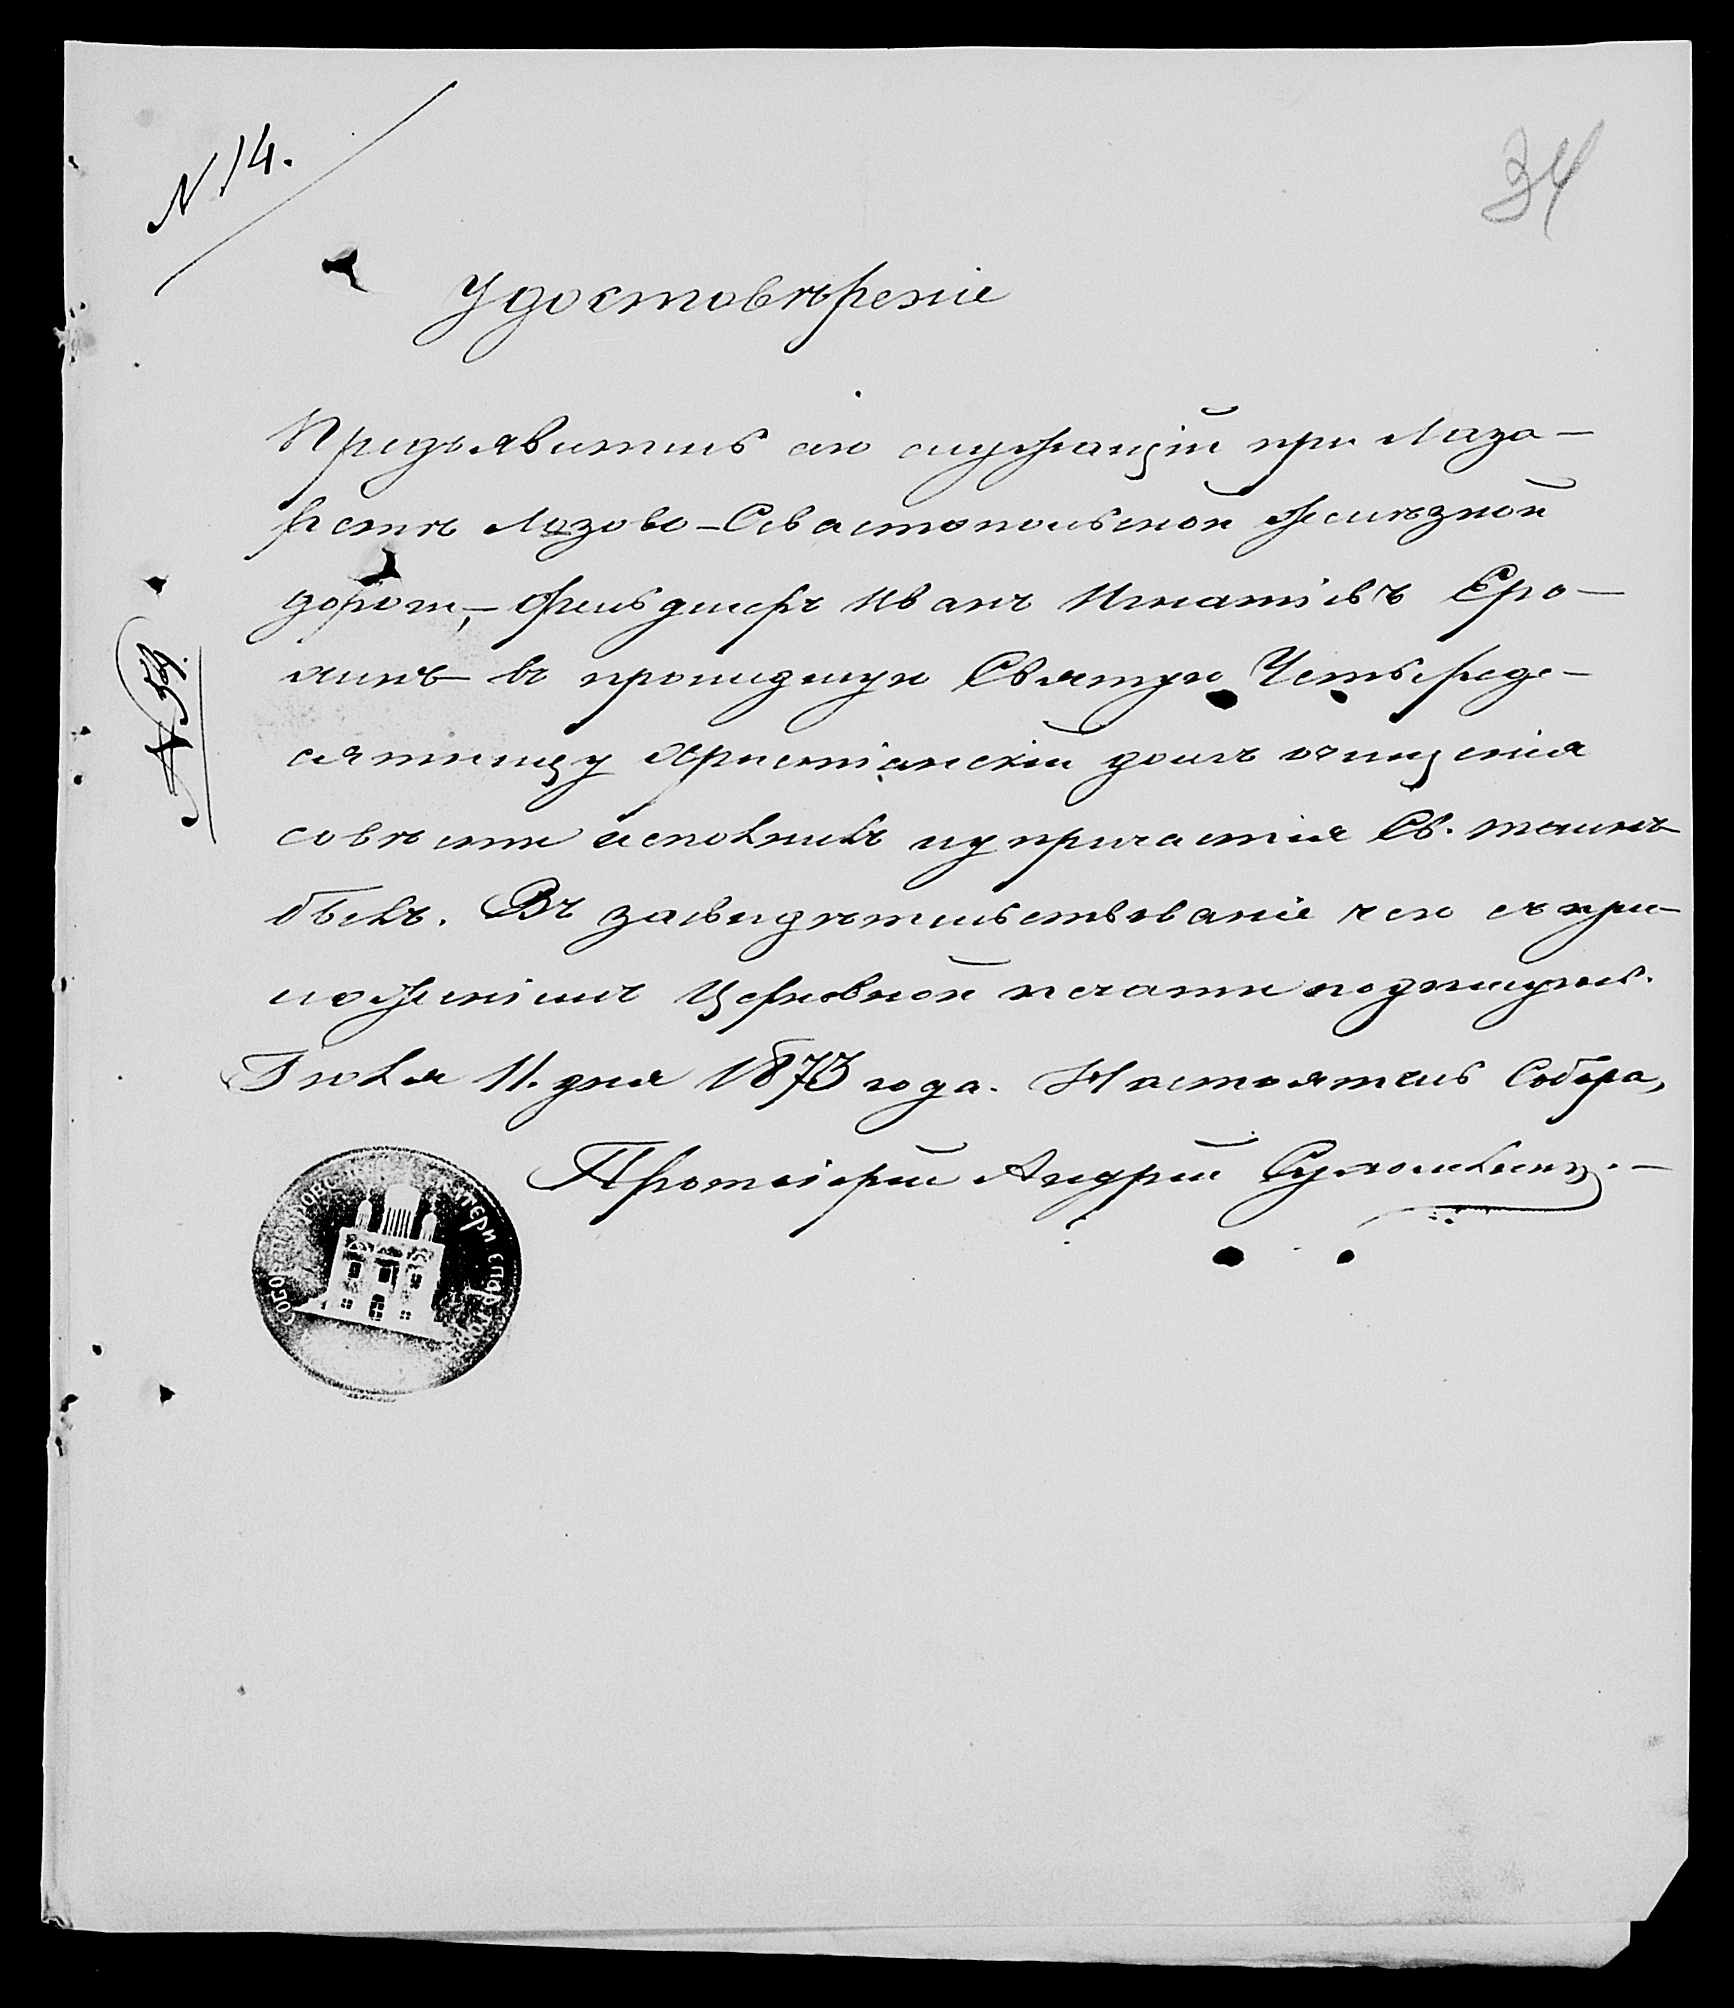 N 14.
34
Удостовѣреніе
Предъявитель сего служащій при Лаза-
ретѣ Лозово-Севастопольской желѣзной
дороги, - Фельдшеръ Иванъ Игнатіевъ Еро-
хинъ въ прошедшую Святую Четыреде-
сятницу Христіанскій долгъ очищенія
совѣсти исполнилъ и у причастія Св. таинъ
былъ. Въ засвидѣтельствованіе чего съ при-
ложеніемъ Церковной печати подпишусь.
Іюля 11. дня 1873 года. Настоятель Собора,
Протоіерей Андрей
N 59.